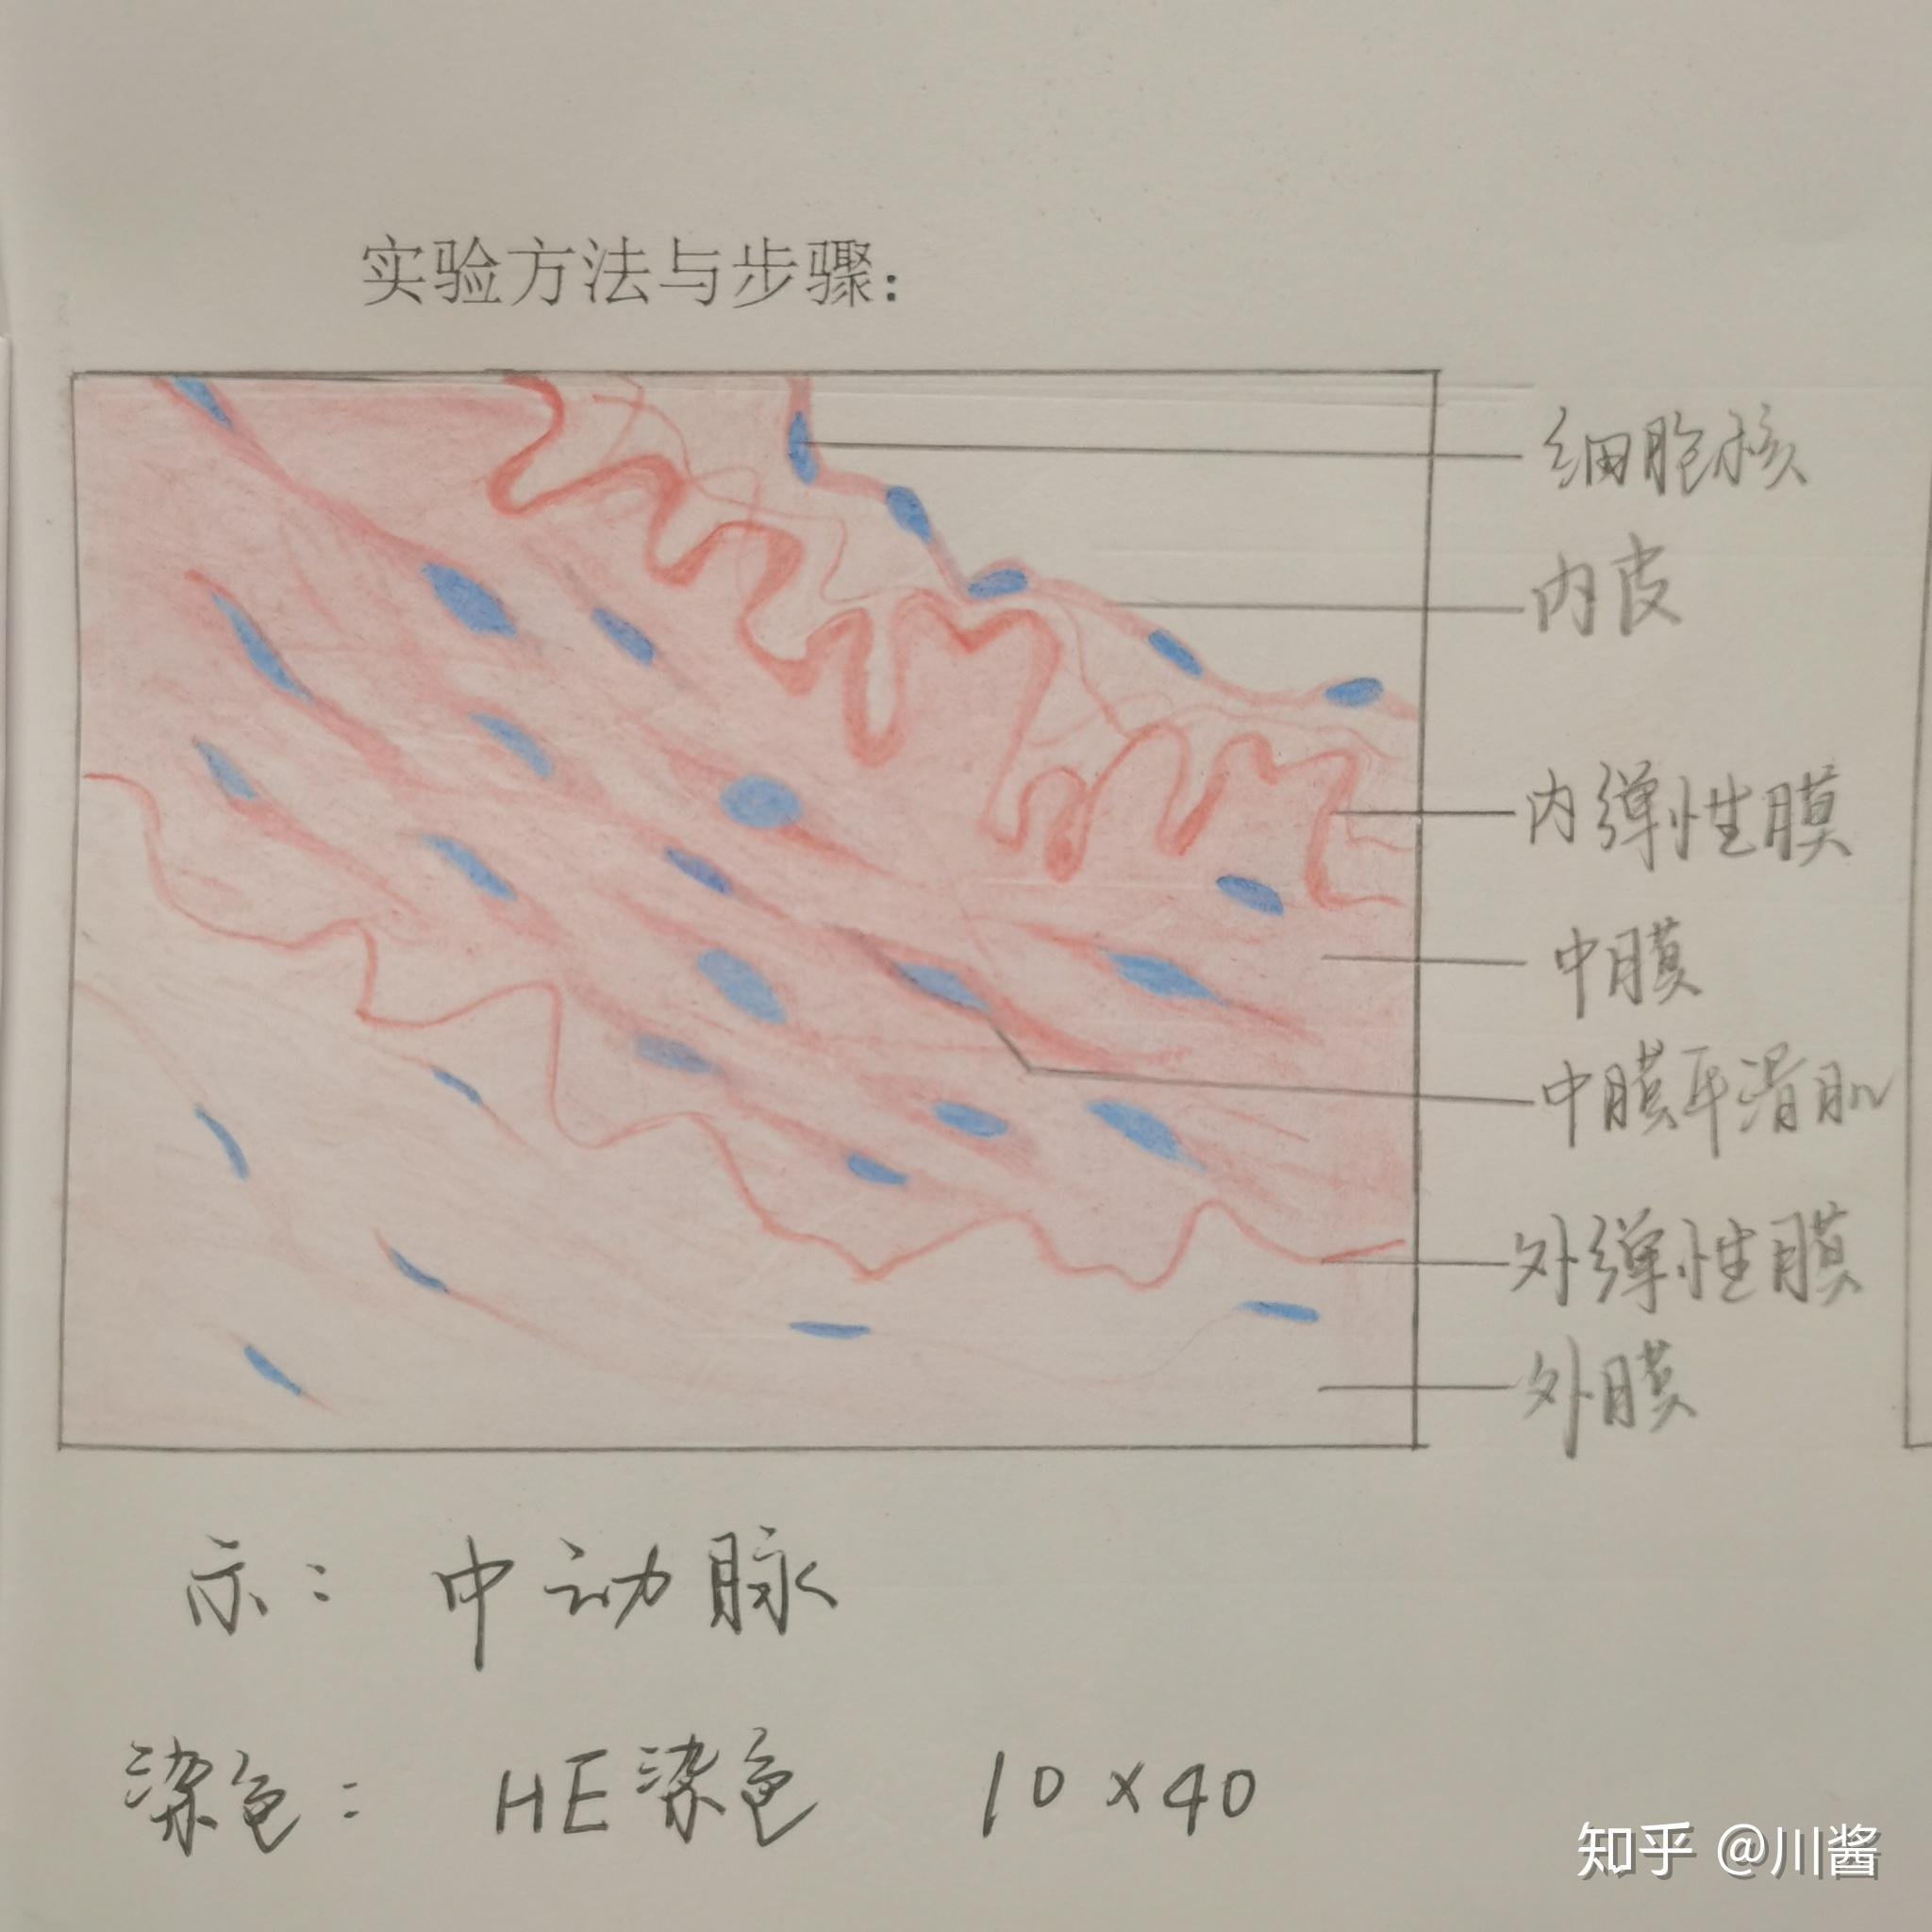 实验方法与步骤：
细胞核
内皮
内弹性膜
中膜
中膜平滑肌
外弹性膜
外膜
示：中动脉
染色：HE染色 10×40
知乎 @川酱